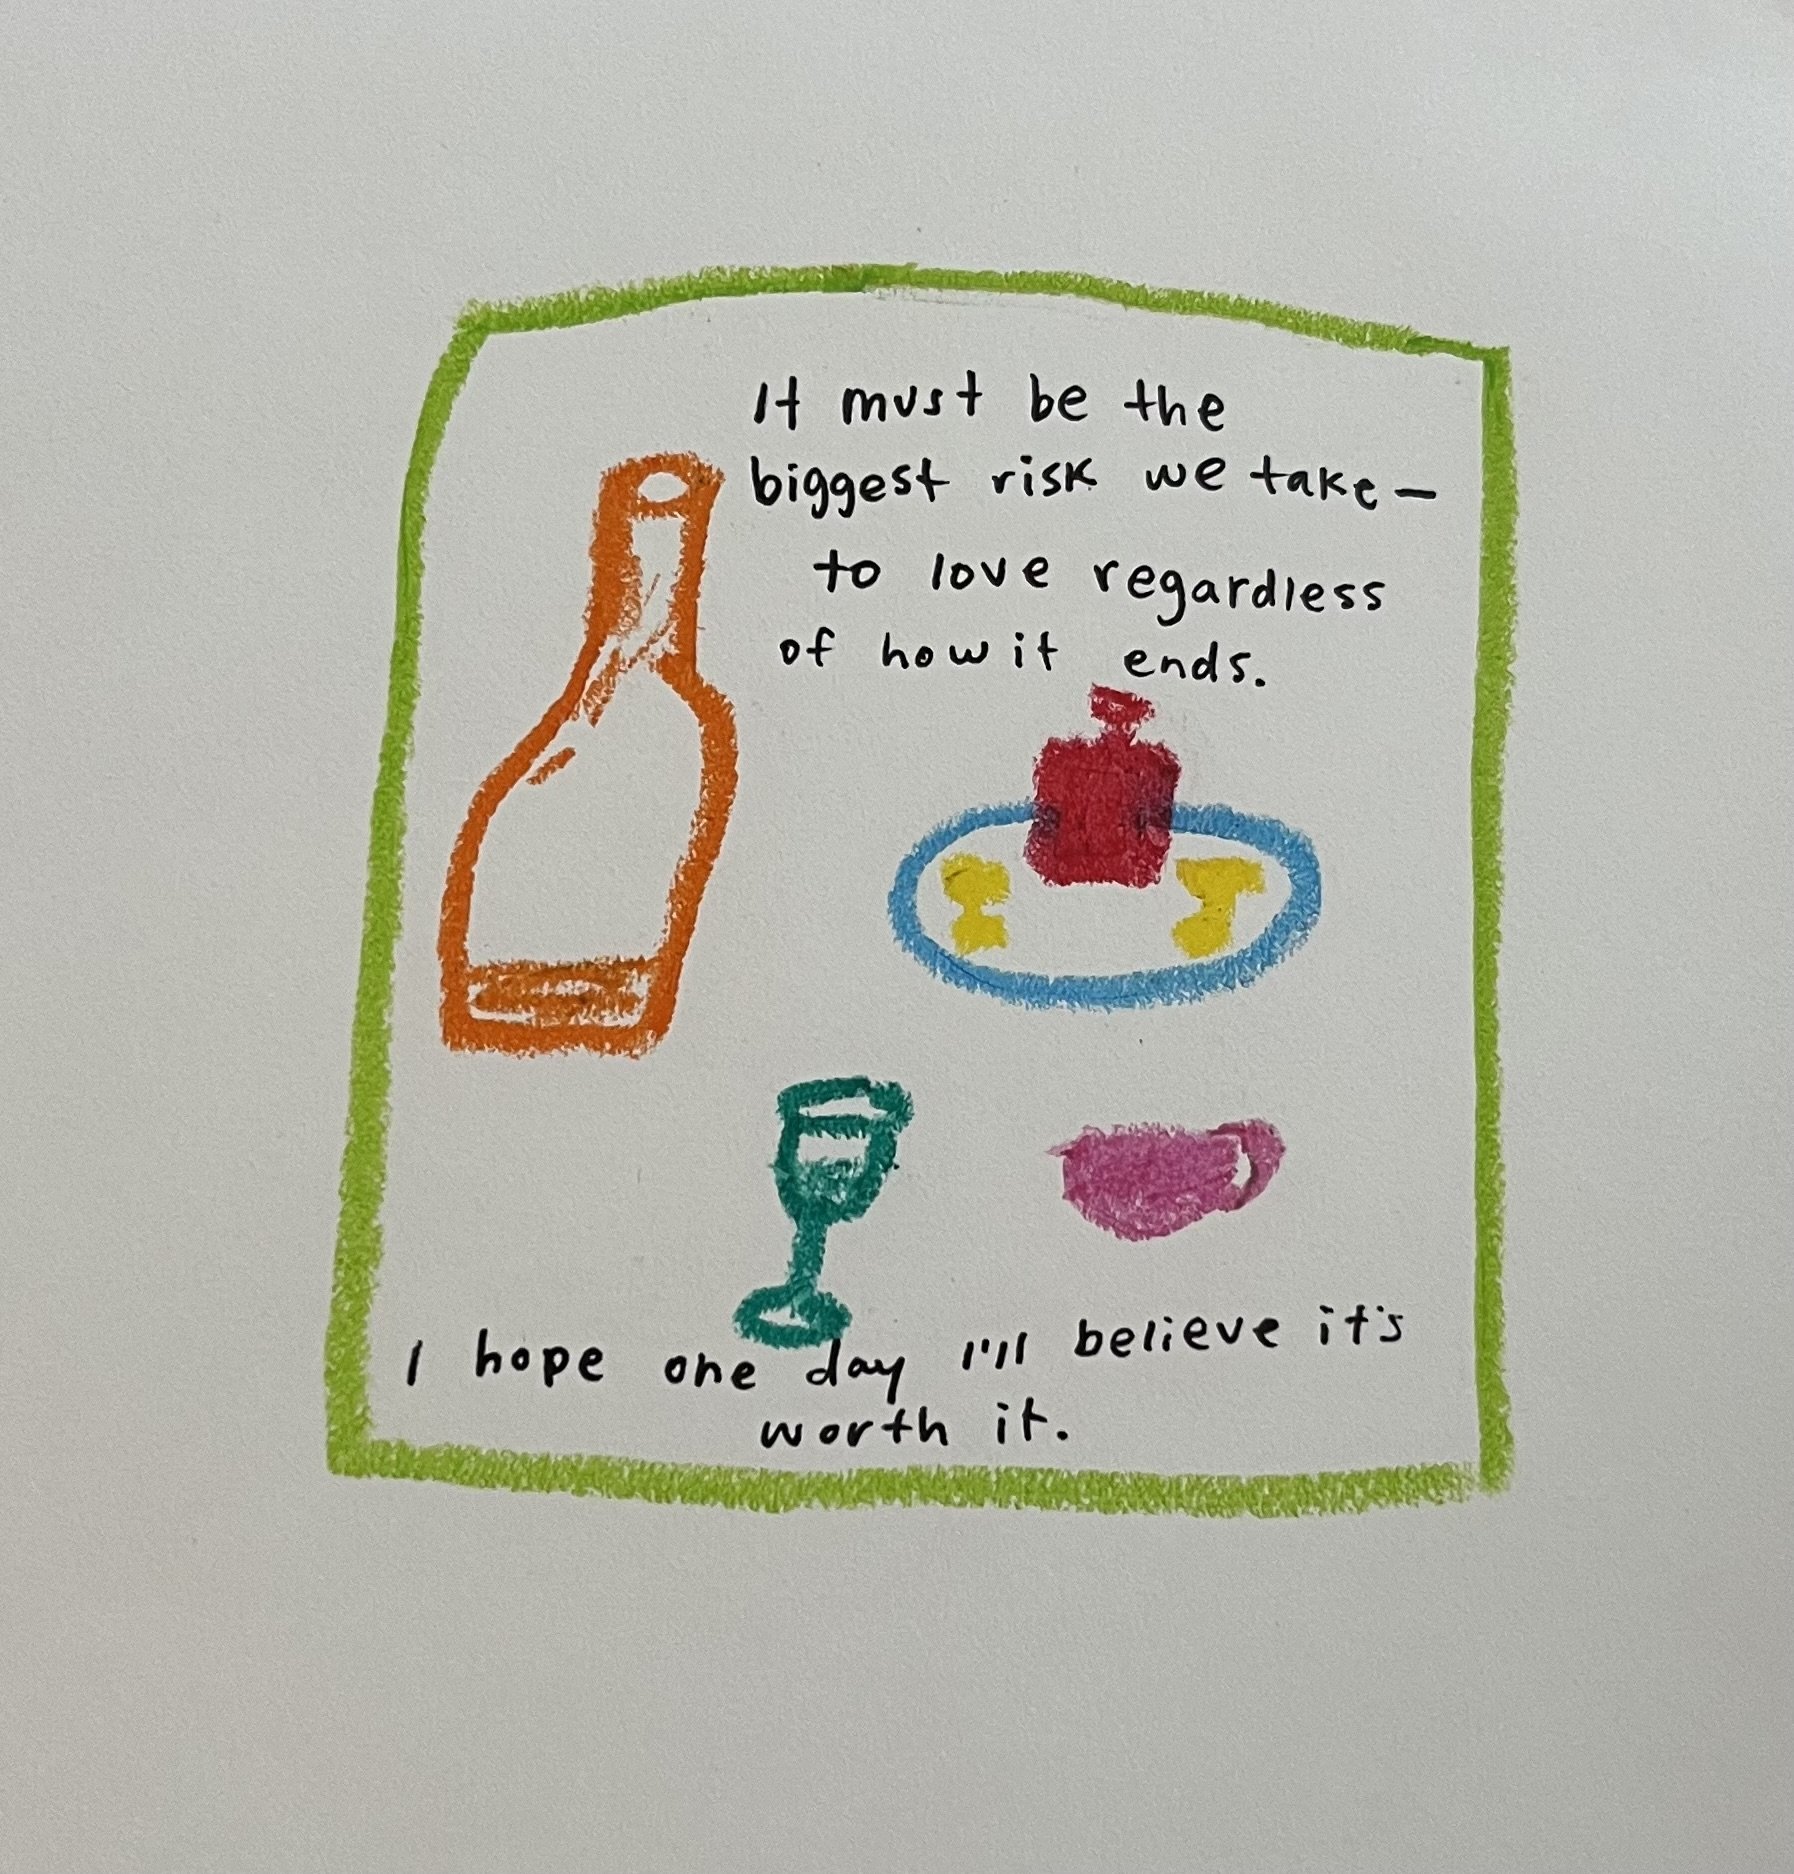 It must be the
biggest risk we take—
to love regardless
of how it ends.
I hope one day I'll believe it's
worth it.